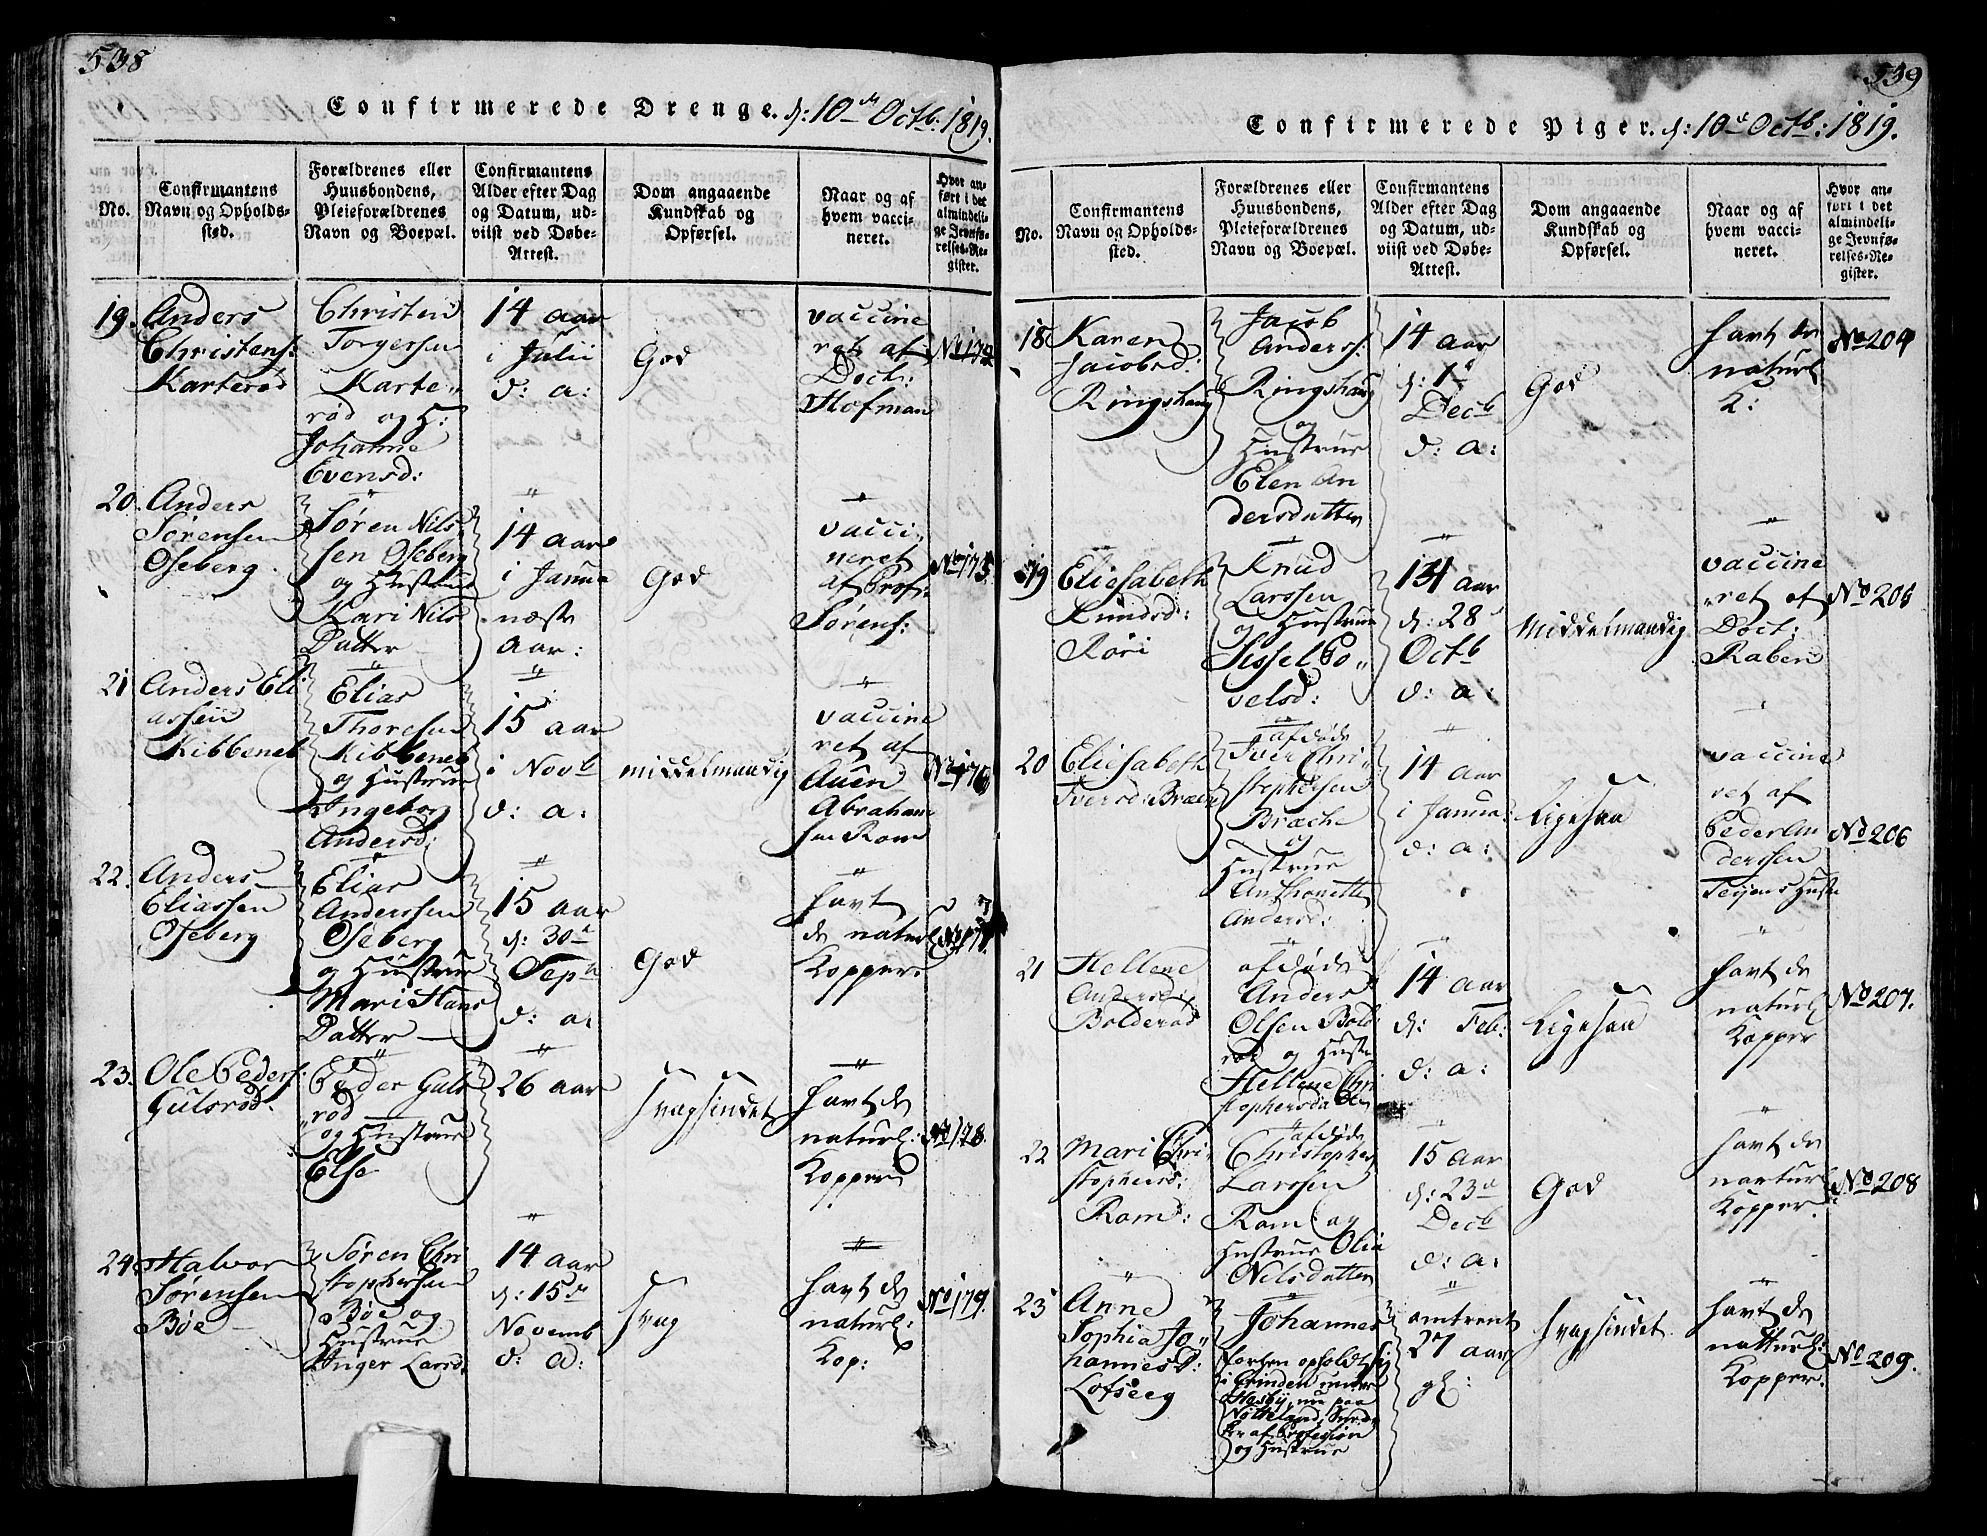 538
Confirmerede Drenge. d: 10de Octb: 1819.
No.
Confirmantens
Navn og Opholds-
sted.
Forældrenes eller
Huusbondens,
Pleieforældrenes
Navn og Boepæl.
Confirmantens
Alder efter Dag
og Datum, ud-
viist ved Døbe-
Attest.
Dom angaaende
Kundskab og
Opførsel.
Naar og af
hvem vacci-
neret.
Hvor an-
ført i det
almindeli-
ge Jevnfø-
relses-Re-
gister.
19.
Anders
Christens:
Karterød
Christen
Torgersen
Karte„
rød og H:
Johanne
Evensd:
14 aar
i Julii
d: a:
God
vaccine
ret af
Doct:
Hofman
No 172
20.
Anders
Sørensen
Oseberg.
Søren Nils
sen Oseberg
og Hustrue
Kari Nils
Datter
14 aar
i Janua
næste
aar:
God
vacci„
neret
af Prof:
Sørens:
No 175
21
Anders Eli
assen
Kibbeneb
Elias
Thoresen
Kibbeneb
og Hustrue
Ingeborg
Andersd:
15 aar
i Novb
d: a:
middelmaadig
vaccine
ret af
Auen
Abraham
sen Rom
No 176
22.
Anders
Eliassen
Oseberg
Elias
Anderssen
Oseberg
og Hustrue
Mari Hans
Datter
15 aar
d: 30te
Sept
d: a:
God
havt
de naturl:
Kopper
No 177
23.
Ole Peders:
Gulsrød.
Peder Guls
rød
og Hustrue
Else
26 aar
svagsindet
havt de
naturl:
Kopper
No 178.
24
Halvor
Sørensen
Bøe
Søren Chri
stophersen
Bøe og
Hustrue
Inger Larsd:
14 aar
d: 15de
Novemb
d: a:
svag
havt de
naturl:
Kop:
No 179.
539
Confirmerede Piger. d: 10de Octb: 1819.
No.
Confirmantens
Navn og Opholds-
sted.
Forældrenes eller
Huusbondens,
Pleieforældrenes
Navn og Boepæl.
Confirmantens
Alder efter Dag
og Datum, ud-
viist ved Døbe-
Attest.
Dom angaaende
Kundskab og
Opførsel.
Naar og af
hvem vacci-
neret.
Hvor an-
ført i det
almindeli-
ge Jevnfø-
relses-Re-
gister.
18
Karen
Jacobsd:
Ringshaug
Jacob
Anders:
Ringshaug
og
Hustrue
Elen An
dersdatter
14 aar
d: 1te
Decb
d: a:
God
havt de
naturl
K:
No 204
19
Eliesabeth
Knudsd:
Røri
Knud
Larssen
og Hustrue
Sissel Po„
velsd:
14 aar
d: 28
Octb
d: a:
Middelmaadig
vaccine
„ret af
Doct:
Raben
No 205
20
Eliesabeth
Iversd: Bræche
afdøde
Iver Chri„
stophersen
Bræche
og
Hustrue
Anthonette
Andersd:
14 aar
i Janua:
d: a:
Ligesaa
vaccine
ret af
Peder An
derssen
Teijens Hustr
No 206
21
Hellene
Andersd:
Bolderød
afdøde
Anders
Olsen Bold
rød og Hustr
Hellene Chri
stophersdatter
14 aar
d: Feb:
d: a:
Ligesaa
havt de
naturl
Kopper
No 207.
22
Mari Chri„
stophersd:
Rom:
afdøde
Christopher
Larssen
Rom og
Hustrue Olia
Nilsdatter
15 aar
d: 23de
Decb
d: a:
God
havt de
narturl:
Kopper.
No 208
23
Anne
Sophia Jo„
hannesd:
Lofseeg
Johannes
forhen opholdt sig
i Grinden under
Hasby, nu paa
Nøtteland,
af Profession
og Hustrue
omtrent
27 aar
gl:
svagsindet
havt de
natturl:
Kopper.
No 209.